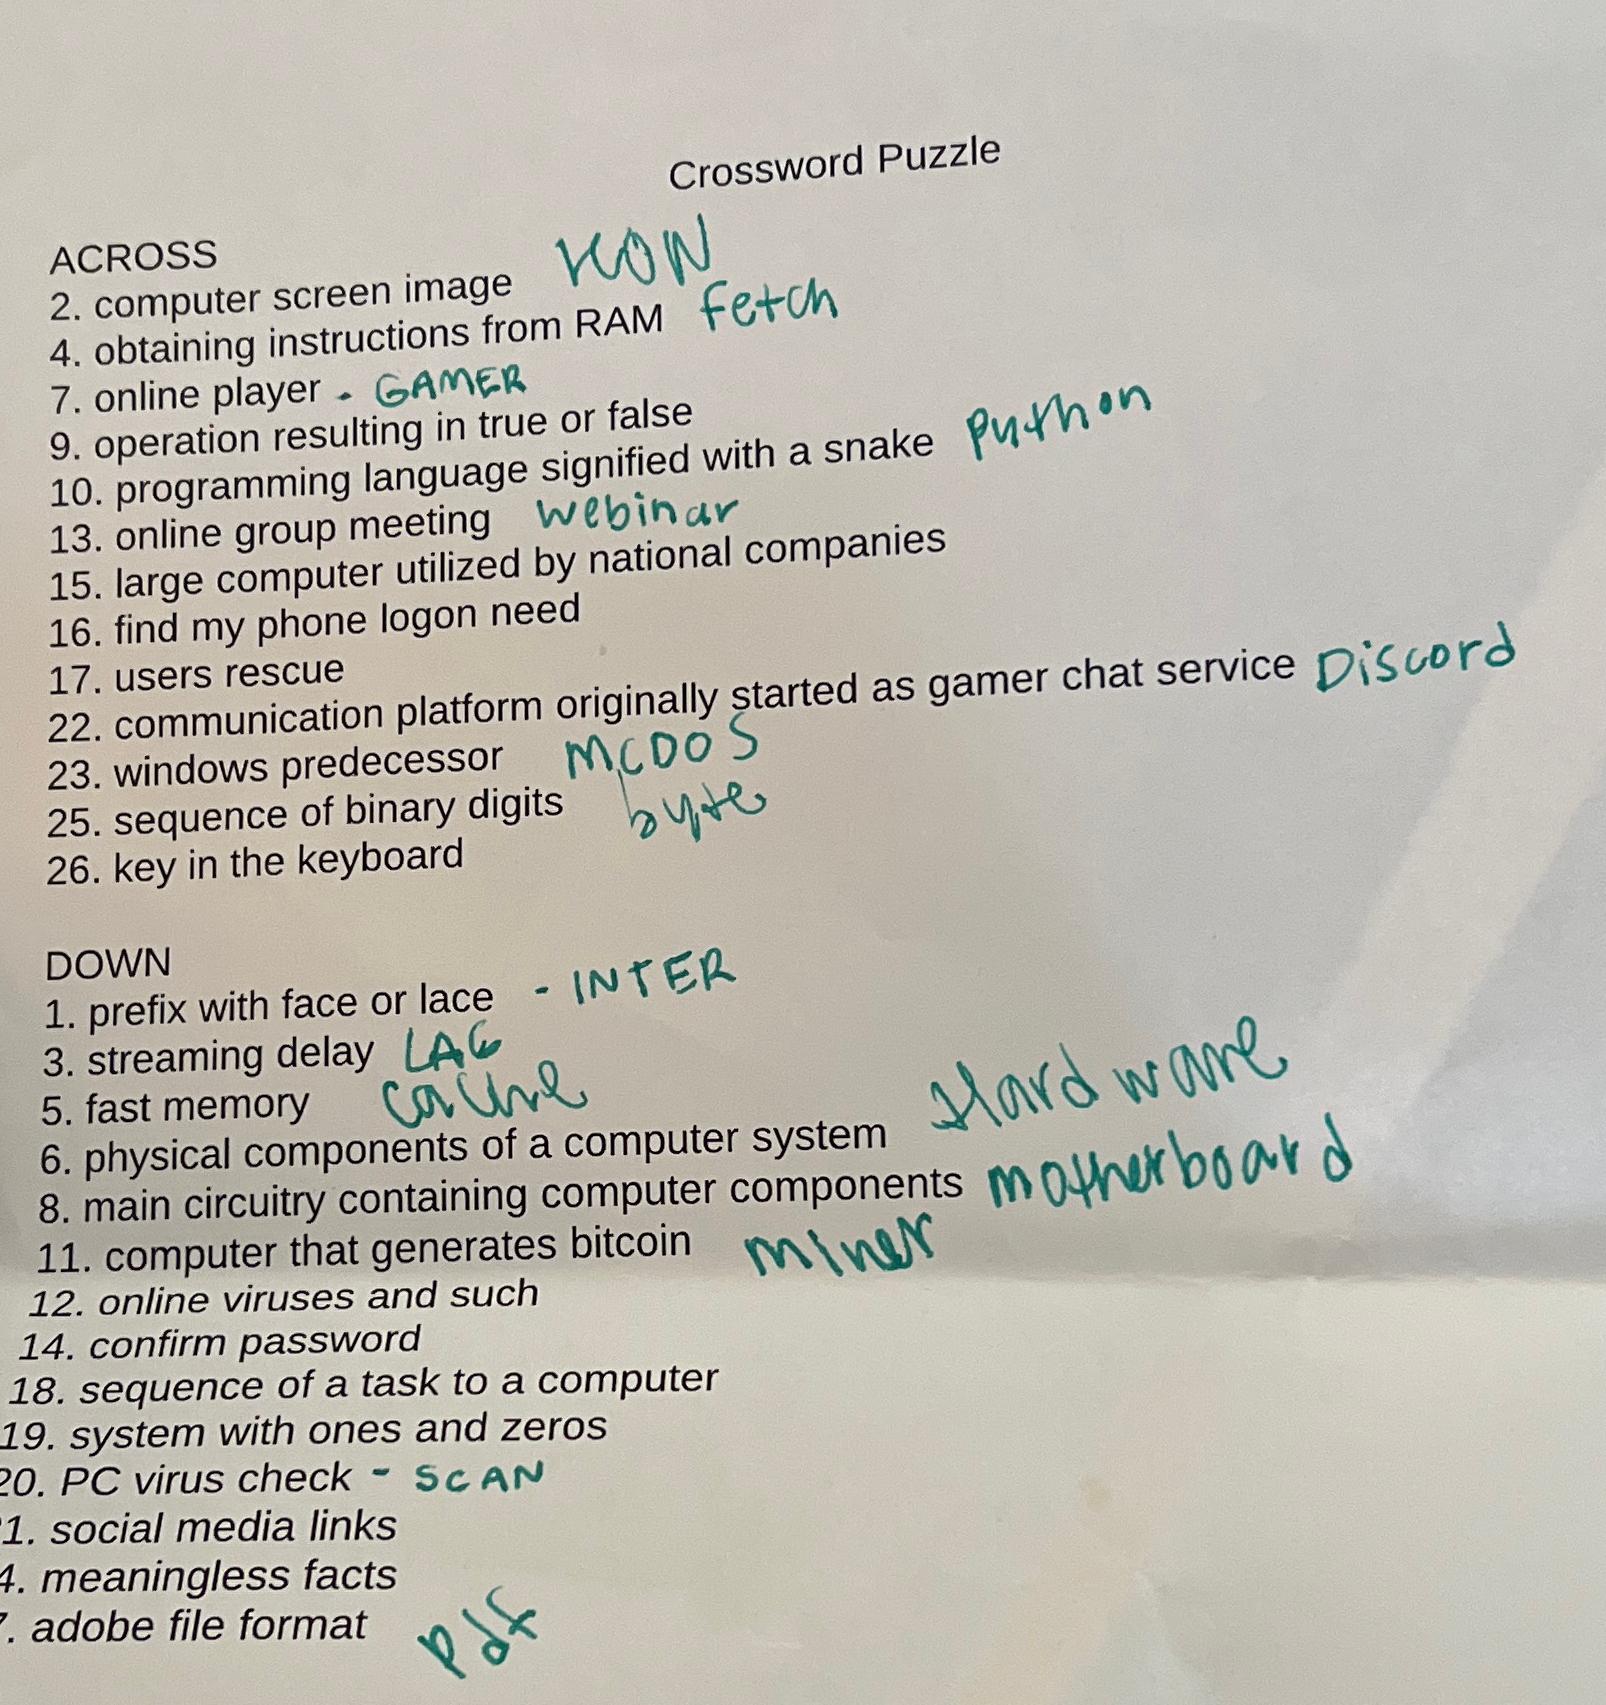 Crossword Puzzle
ACROSS
2. computer screen image ICON
4. obtaining instructions from RAM Fetch
7. online player - GAMER
9. operation resulting in true or false
10. programming language signified with a snake Python
13. online group meeting webinar
15. large computer utilized by national companies
16. find my phone logon need
17. users rescue
22. communication platform originally started as gamer chat service Discord
23. windows predecessor MCDOS
25. sequence of binary digits byte
26. key in the keyboard
DOWN
1. prefix with face or lace - INTER
3. streaming delay LAG
5. fast memory Cache
6. physical components of a computer system Hardware
8. main circuitry containing computer components motherboard
11. computer that generates bitcoin miner
12. online viruses and such
14. confirm password
18. sequence of a task to a computer
19. system with ones and zeros
20. PC virus check - SCAN
1. social media links
4. meaningless facts
. adobe file format pdf